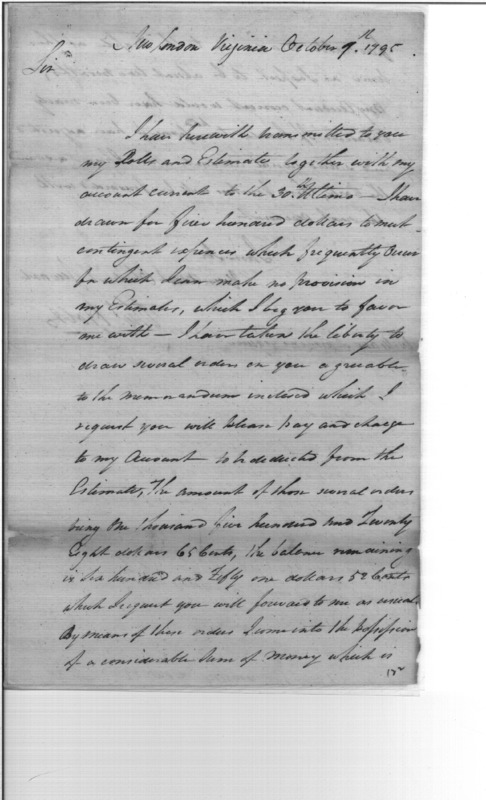 New London Virginia October 9th 1795
Sir
I have herewith transmitted to you
my Rolls and Estimates together with my
account current to the 30th Ultimo — I have
drawn for five hundred dollars to meet
contingent expences which frequently Occur
for which I can make no provision in
my Estimates, which I beg you to favor
me with — I have taken the liberty to
draw several orders on you agreeable
to the memorandum inclosed which I
request you will please pay and charge
to my Account to be deducted from the
Estimates, The amount of those several orders
being One thousand five hundred and Twenty
Eight dollars 65 Cents, the balance remaining
is Six hundred and Fifty one dollars 52 Cents
which I request you will forward to me as usual.
By means of these orders I come into the possession
of a considerable Sum of Money which is